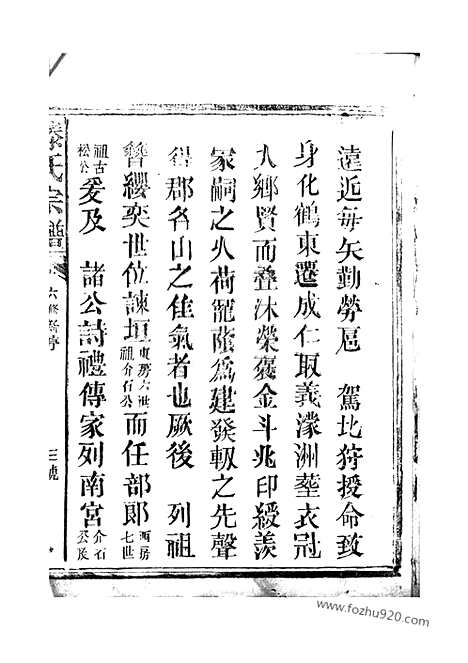 遠近每矢勤勞扈　駕北狩授命致
身化鶴東還成仁取義濛洲塟衣冠
入鄉賢而叠沐榮褒金斗兆印綬羨
家嗣之久荷寵蔭爲建發軔之先聲
得郡名山之佳氣者也厥後　列祖
簪纓奕世位諫垣東房六世祖介石公而任部郎西房七世
祖古松公爰及　諸公詩禮傳家列南宮介石
氏宗譜
六修
三號
www.fozhu920.com